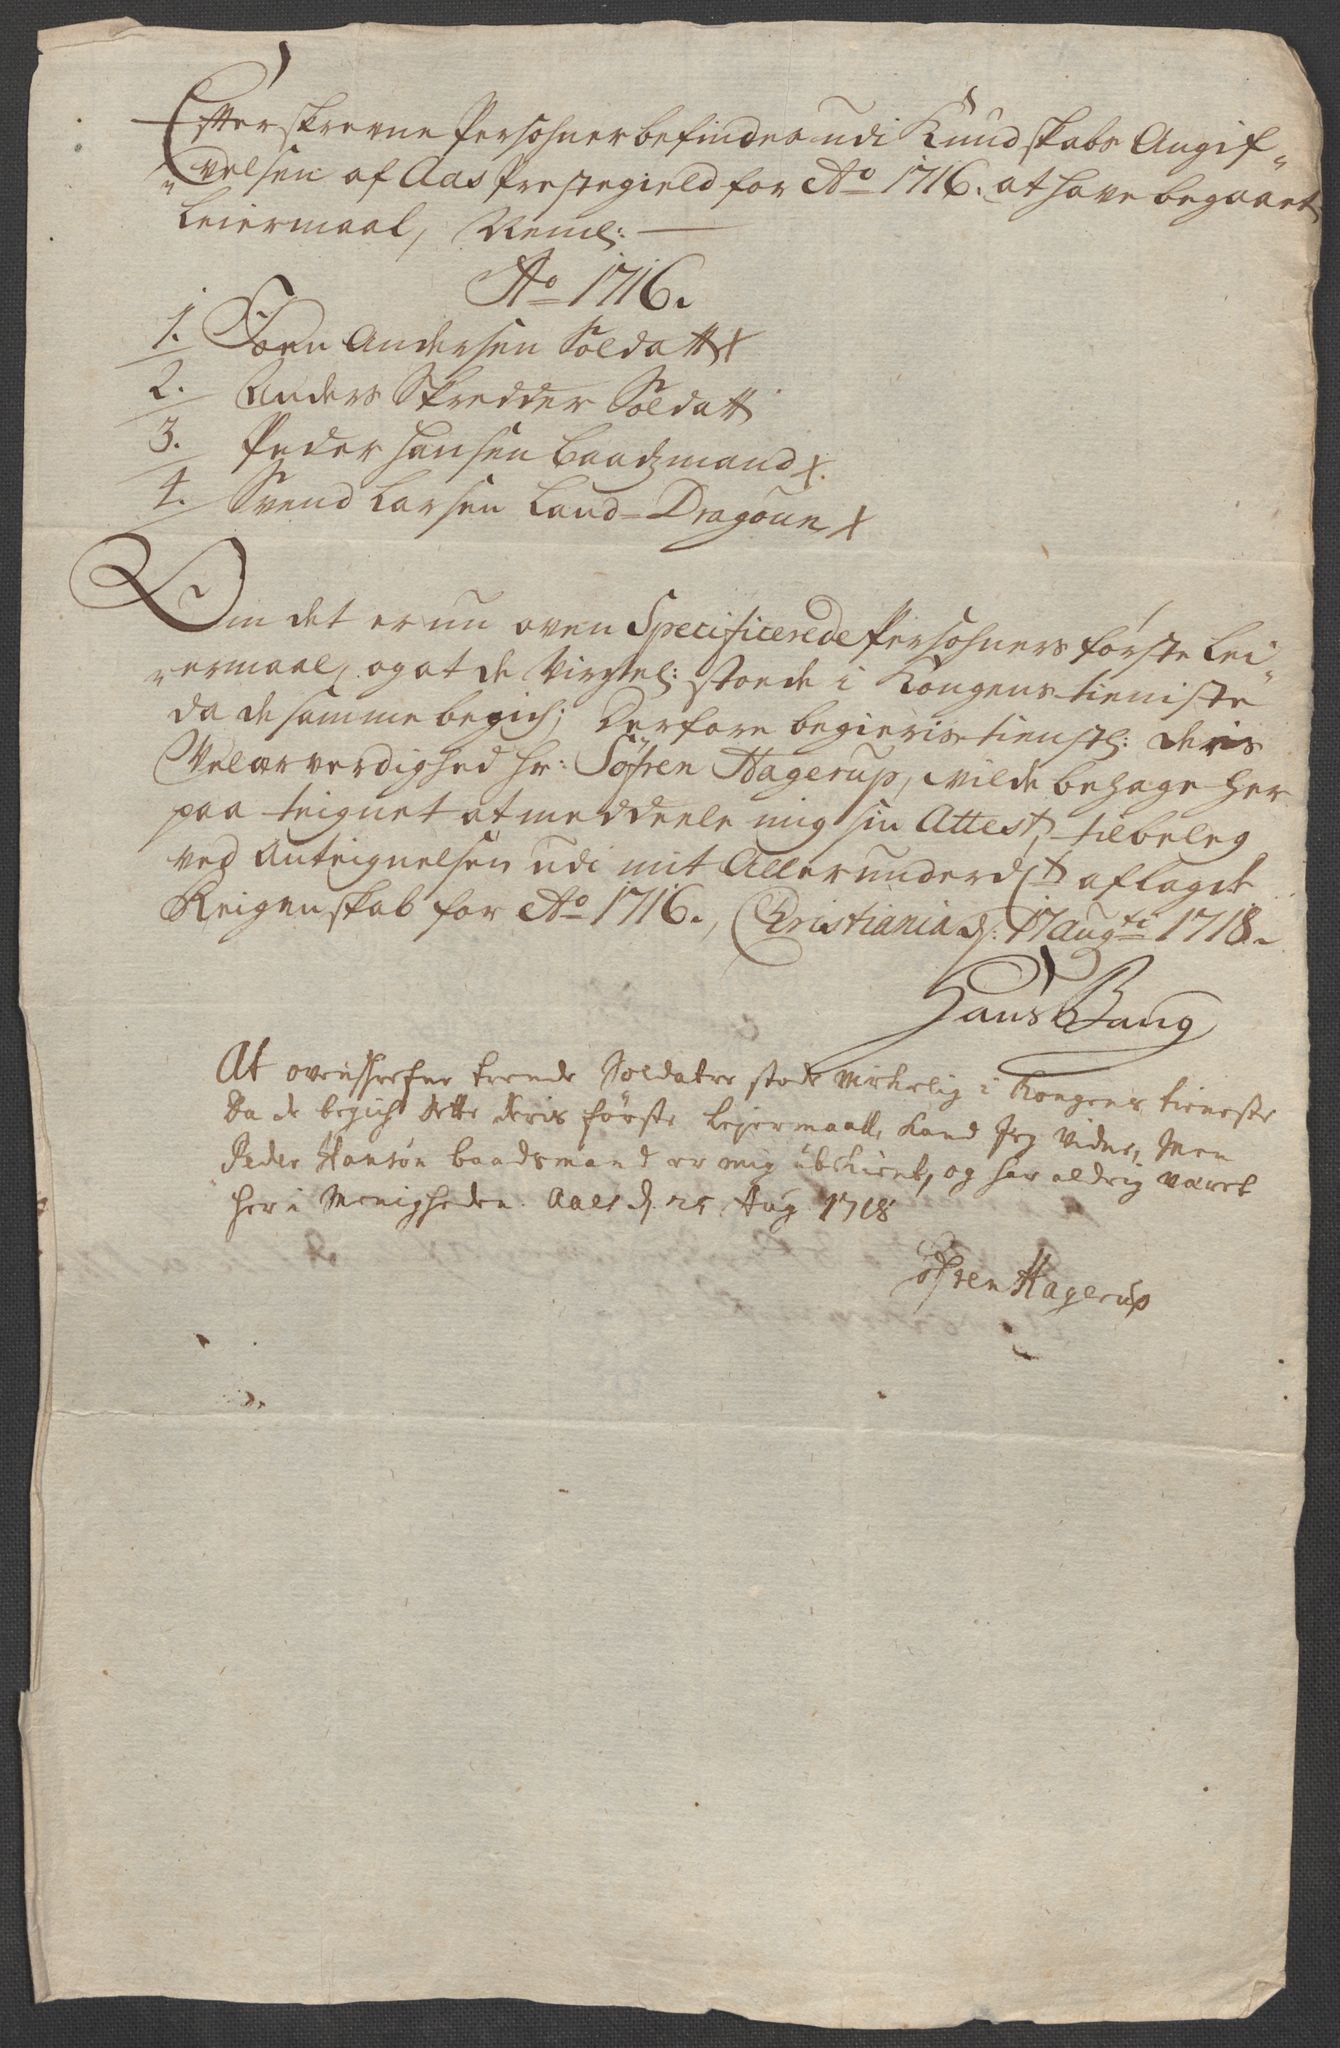 Efterskrevne Persohner befindes udi Kundskabs Angif„
„velsen af Aas Prestegield for Ao 1716. at have begaaet
Leiermaal, Neml:
Ao 1716.
1. Joen Andersen Soldatt x
2. Anders Skredder Soldatt
3. Peder Hansen Baadzmand x.
4. Svend Larsen Land-Dragoun x
Om det er nu oven Specificerede Persohners første Lei„
„ermaal, og at de Virchel: stoede i Kongens tieniste
da de samme begich; Derfore begieris tienstl: deris
Velærverdighed hr: Søfren Hagerup, vilde behage her
paa teignet at meddeele mig sin Attest, til beleg
ved Anteignelsen udi mit Allerunderd: aflagde
Reigenskab for Ao 1716., Christiania d: 17 Augti 1718.
Hans Bang
At ovenschrefne trende Soldater stode Virkelig i Kongens tieneste
da de begich dette deris første Lejermaall, kand Jeg Vidne, Men
Peder Hansøn baadsmand er mig ubekient, og har aldrig været
her i Menigheden. Aas d. 25 Aug 1718
Søfren Hagerup